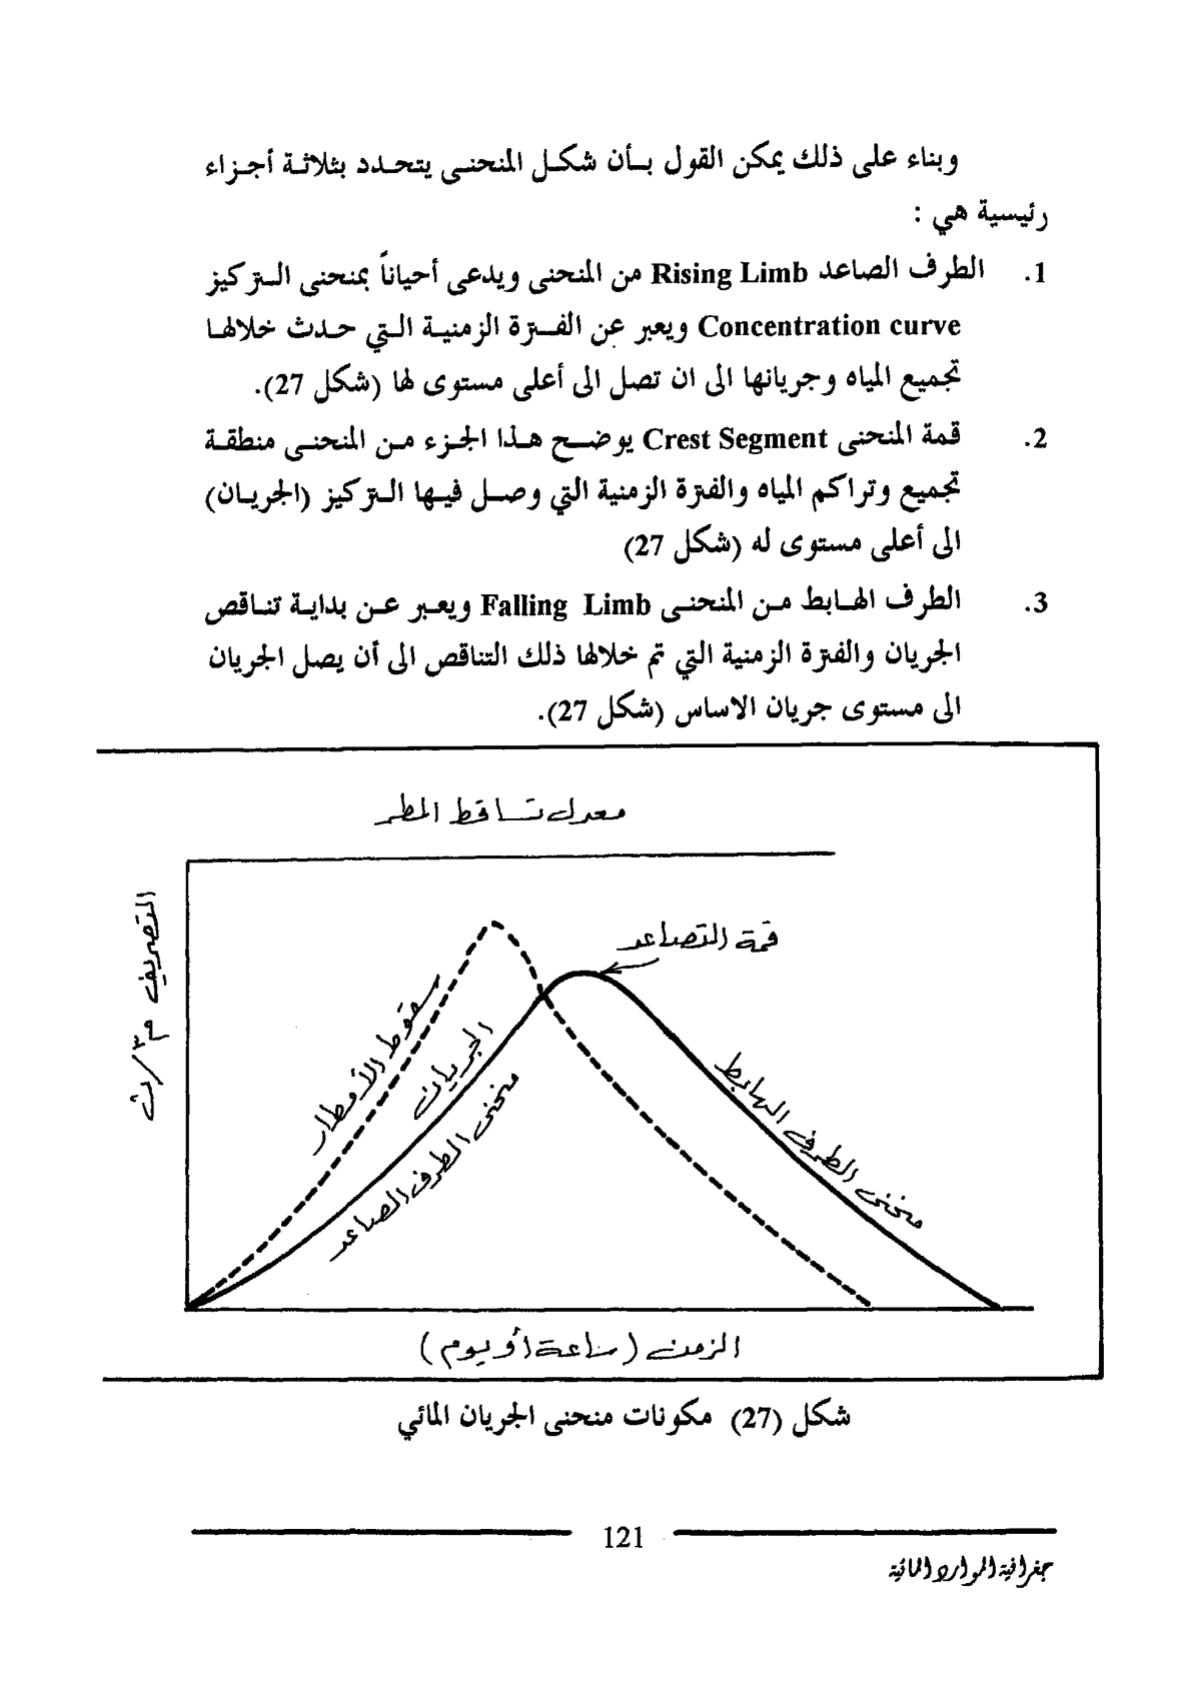 وبناء على ذلك يمكن القول بأن شكل المنحنى يتحدد بثلاثة أجزاء
رئيسية هي :
1. الطرف الصاعد Rising Limb من المنحنى ويدعى أحياناً بمنحنى التركيز
Concentration curve ويعبر عن الفترة الزمنية التي حدث خلالها
تجميع المياه وجريانها الى ان تصل الى أعلى مستوى لها (شكل 27).
2. قمة المنحنى Crest Segment يوضح هذا الجزء من المنحنى منطقة
تجميع وتراكم المياه والفترة الزمنية التي وصل فيها التركيز (الجريان)
الى أعلى مستوى له (شكل 27)
3. الطرف الهابط من المنحنى Falling Limb ويعبر عن بداية تناقص
الجريان والفترة الزمنية التي تم خلالها ذلك التناقص الى أن يصل الجريان
الى مستوى جريان الاساس (شكل 27).
معدل تساقط المطر
التصريف م٣/ث
قمة التصاعد
سقوط الأمطار
الجريان
منحنى الطرف الصاعد
منحنى الطرف الهابط
الزمن (ساعة أو يوم)
شكل (27) مكونات منحنى الجريان المائي
121
جغرافية الموارد المائية